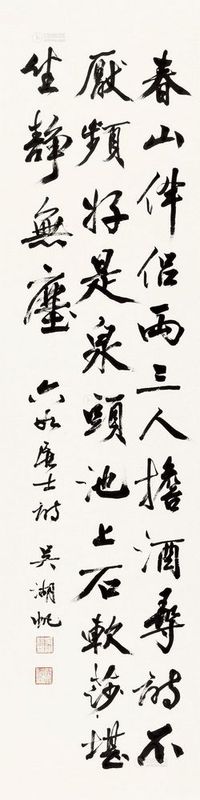 春山伴侣兩三人擔酒尋詩不
厭頻好是泉頭池上石軟莎堪
坐静無塵
六如居士詩
吳湖帆